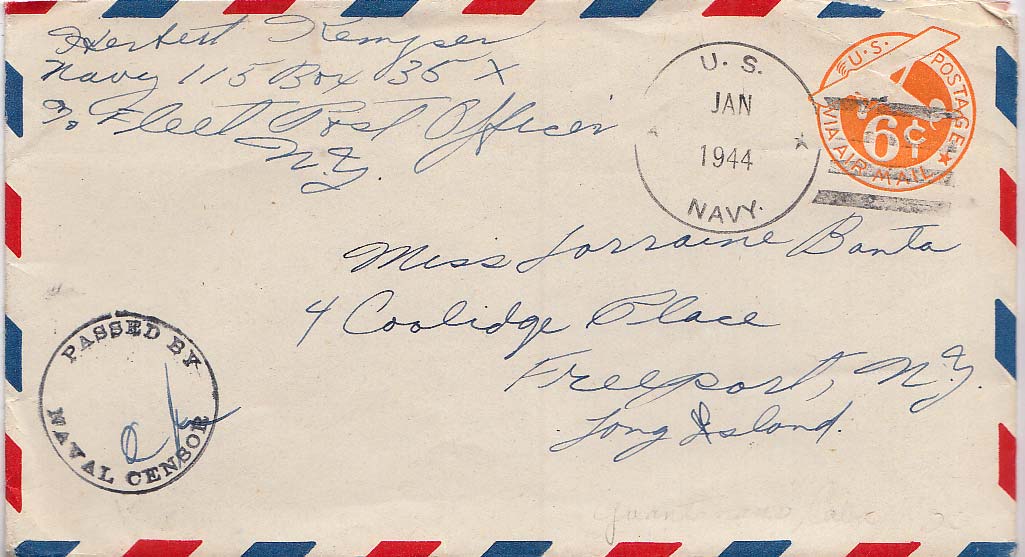 Herbert Kemper
Navy 115 Box 35 X
℅ Fleet Post Officer
N.Y.
U. S.
JAN
1944
NAVY.
U.S. POSTAGE
6¢
VIA AIR MAIL
Miss Lorraine Banta
4 Coolidge Place
Freeport, N.Y.
Long Island.
PASSED BY
NAVAL CENSOR